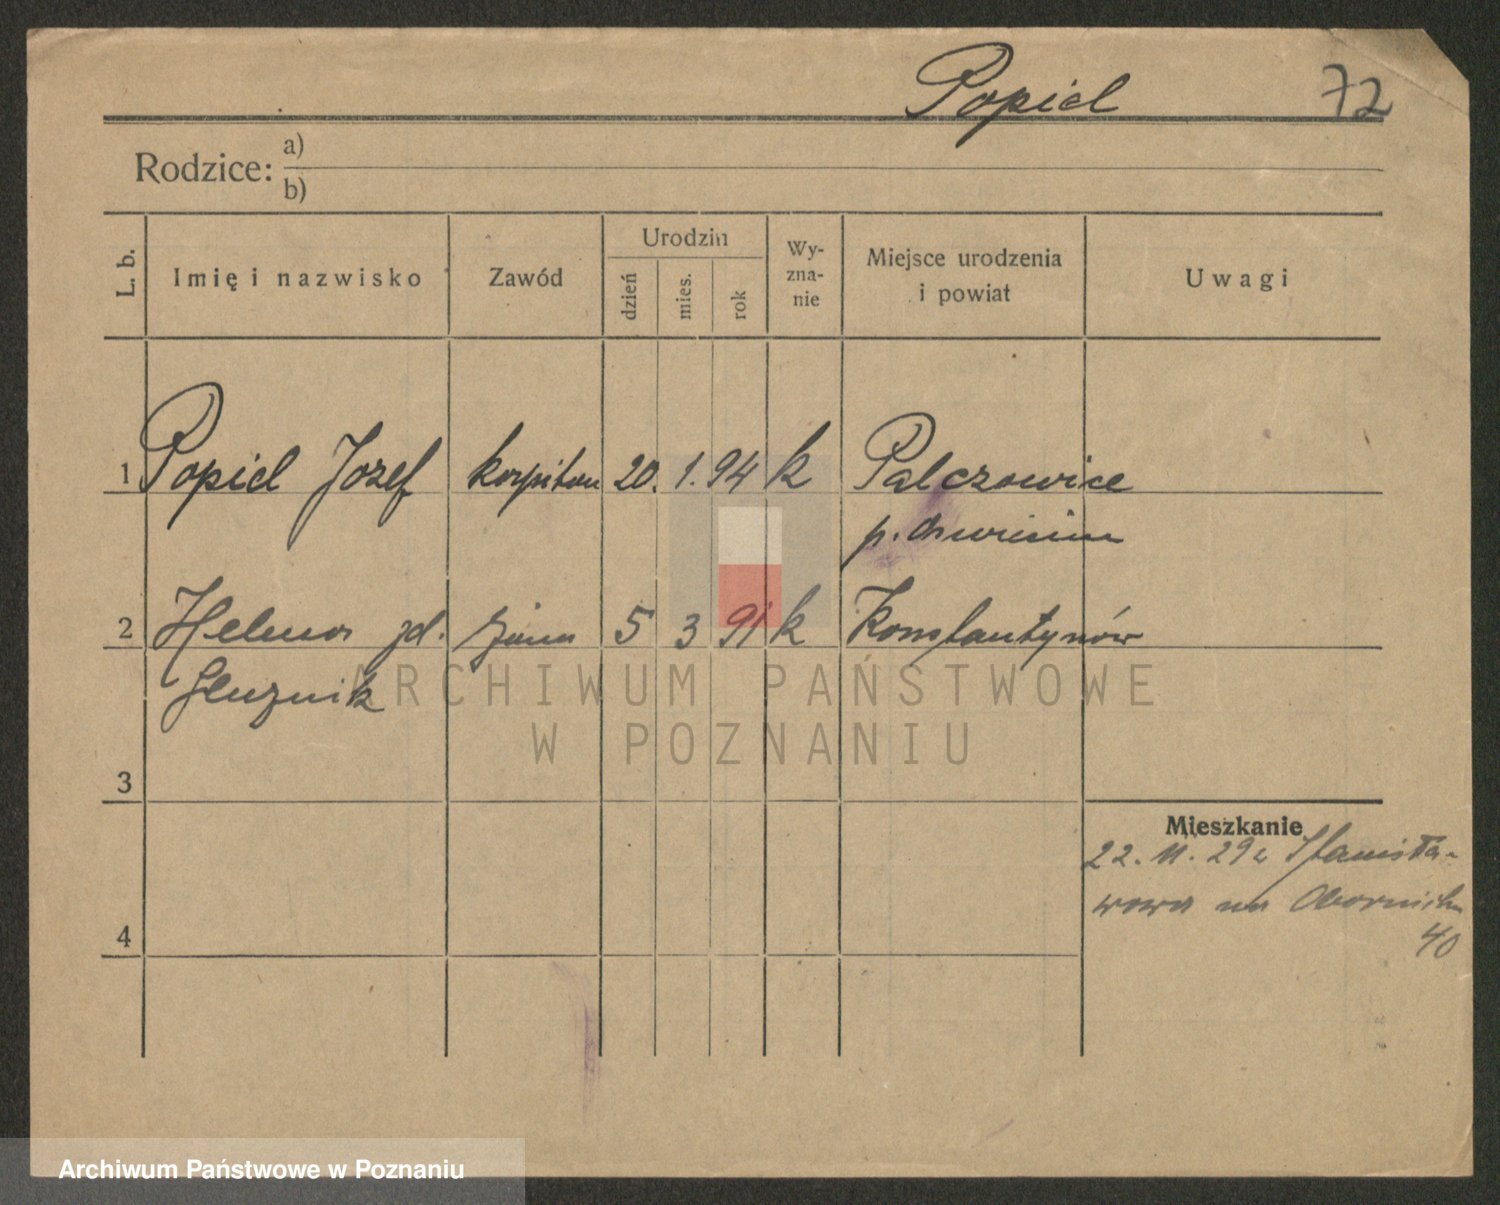 Popiel 72
Rodzice: a)
b)
L. b. Imię i nazwisko Zawód Urodzin dzień mies. rok Wy-zna-nie Miejsce urodzenia i powiat Uwagi
1 Popiel Jozef kapitan 20. 1. 94 k Palczowice
p.
2 Helena zd. żona 5 3 91 k Konstantynów
ARCHIWUM PAŃSTWOWE
W POZNANIU
3
Mieszkanie
22. 11. 29 z Stanisła-
wowa na
40
4
Archiwum Państwowe w Poznaniu